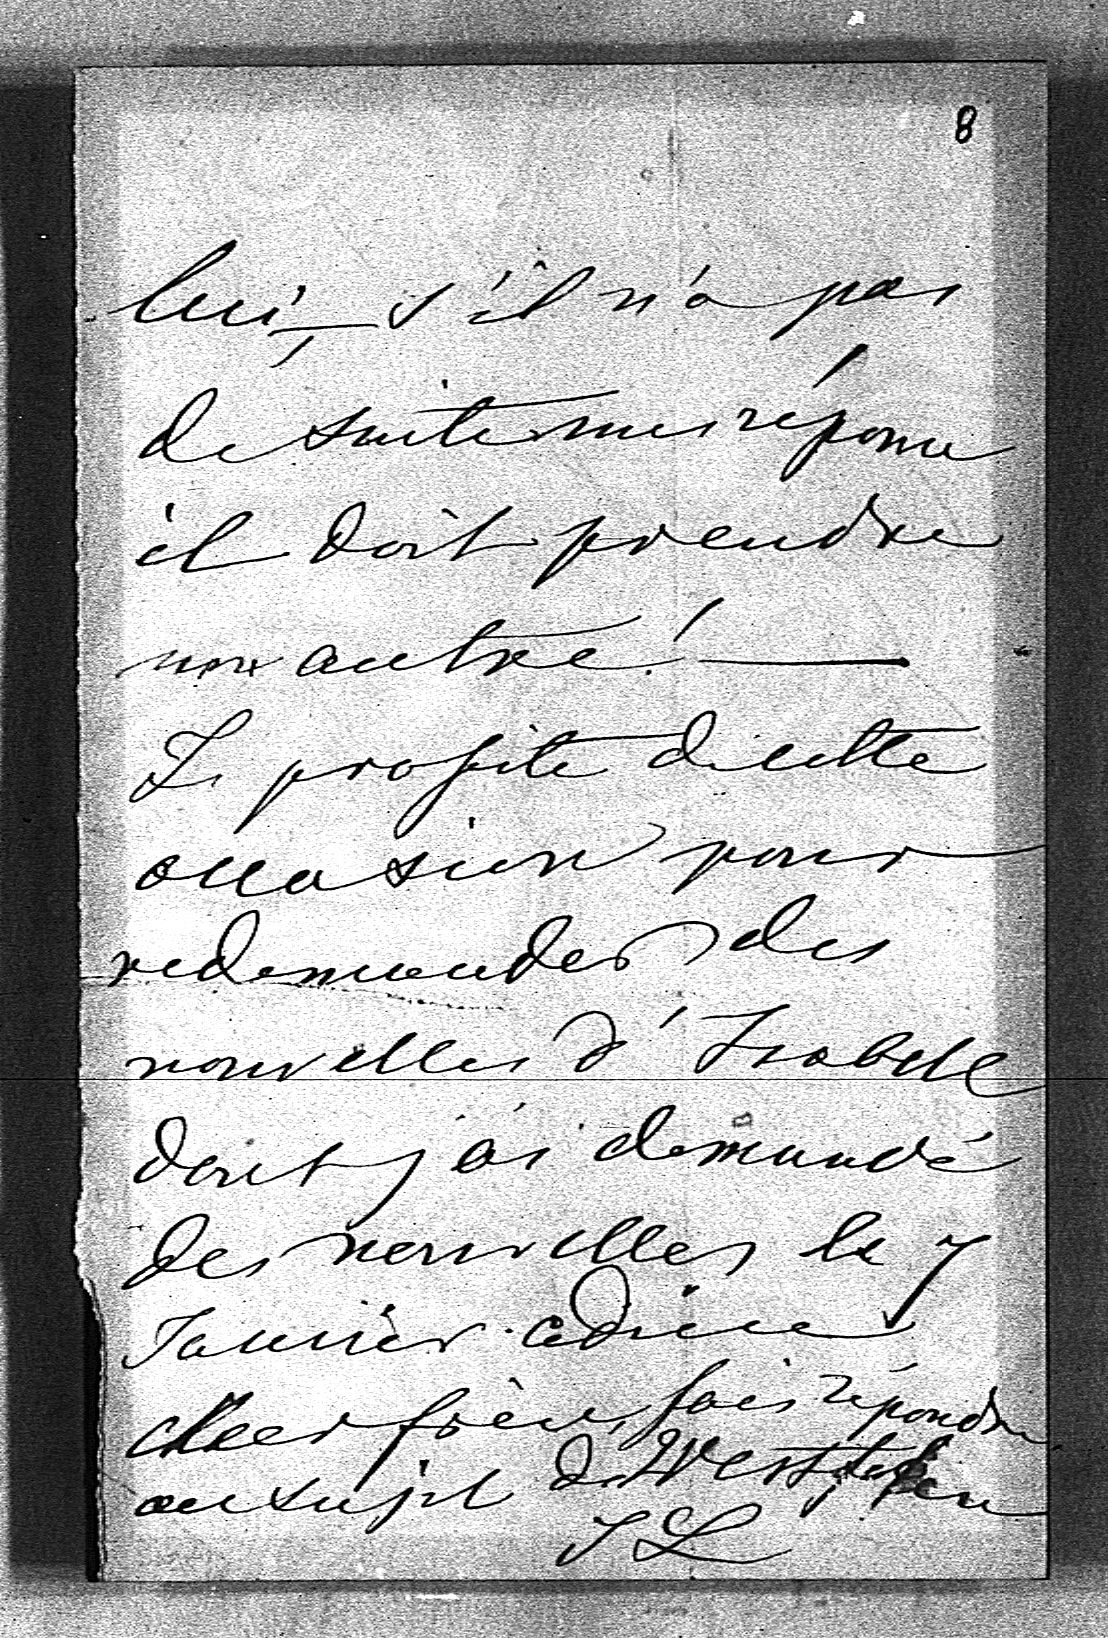 8
lui, — s'il n'a pas
de suite une réponse
il doit prendre
un autre! —
Je profite de cette
occasion pour
redemander des
nouvelles d'Isabelle
dont j'ai demandé
des nouvelles le 7
Janvier. adieu
cher frère, fais répondre
au sujet de
J L